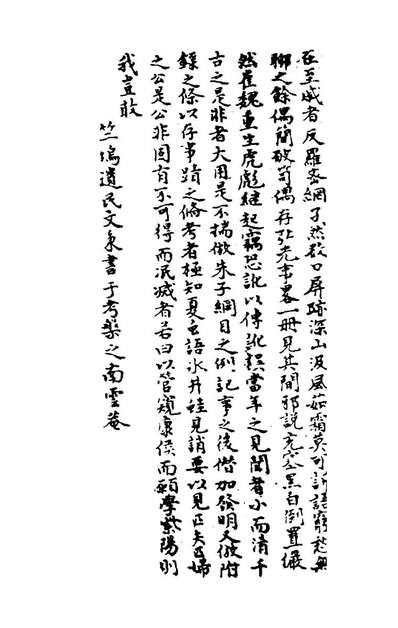 在至戚者反羅密網孑然欽口屏跡深山汲風茹霜莫可訴語窮愁無
聊之餘偶簡破笥偶存先帝畧一冊見其間邪説充塞黑白倒置儼
然崔魏重生虎彪繼起竊恐訛以傳訛誤當年之見聞者小而淆千
古之是非者大用是不揣倣朱子綱目之例記事之後僭加發明又倣附
錄之條以存事蹟之備考者極知夏虫語氷井蛙見誚要以見匹夫匹婦
之公是公非固有不可得而泯滅者若曰以管窺康侯而願學紫陽則
我豈敢
竺塢遺民文秉書于考槃之南雲菴